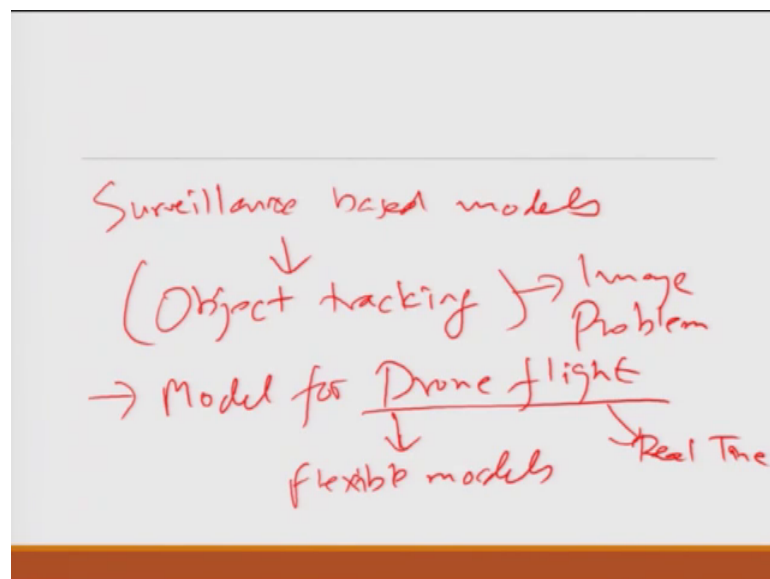 Surveillance based models
↓
(Object tracking) → Image
Problem
→ Model for Drone flight
flexible models
Real Time